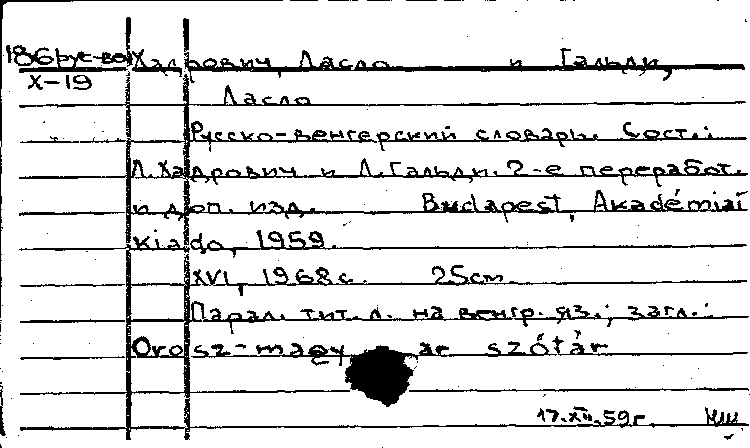 186рус-во Хадрович, Ласло и Гальди,
X-19
Ласло
Русско-венгерский словарь. Сост.:
Л. Хадрович и Л. Гальди. 2-е переработ.
и доп. изд. Budapest, Akadémiai
kiado, 1959.
XVI, 1968 с. 25cm.
Парал. тит. л. на венгр. яз.; загл.:
Orosz-magy ar szótár
17.XII.59г.